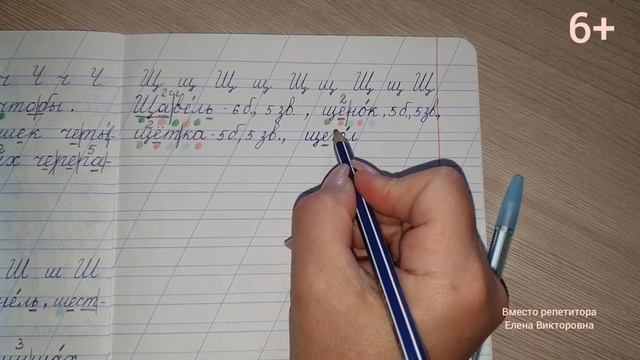 6+
ч Ч ч Ч
чтобы.
шек четы-
их чере́па-
Ш ш Ш
не́ль, шест-
Щ щ Щ щ Щ щ Щ щ Щ
Щаве́ль - 6б, 5 зв., щено́к, 5б, 5 зв,
щётка - 5б, 5 зв., щегол
Вместо репетитора
Елена Викторовна